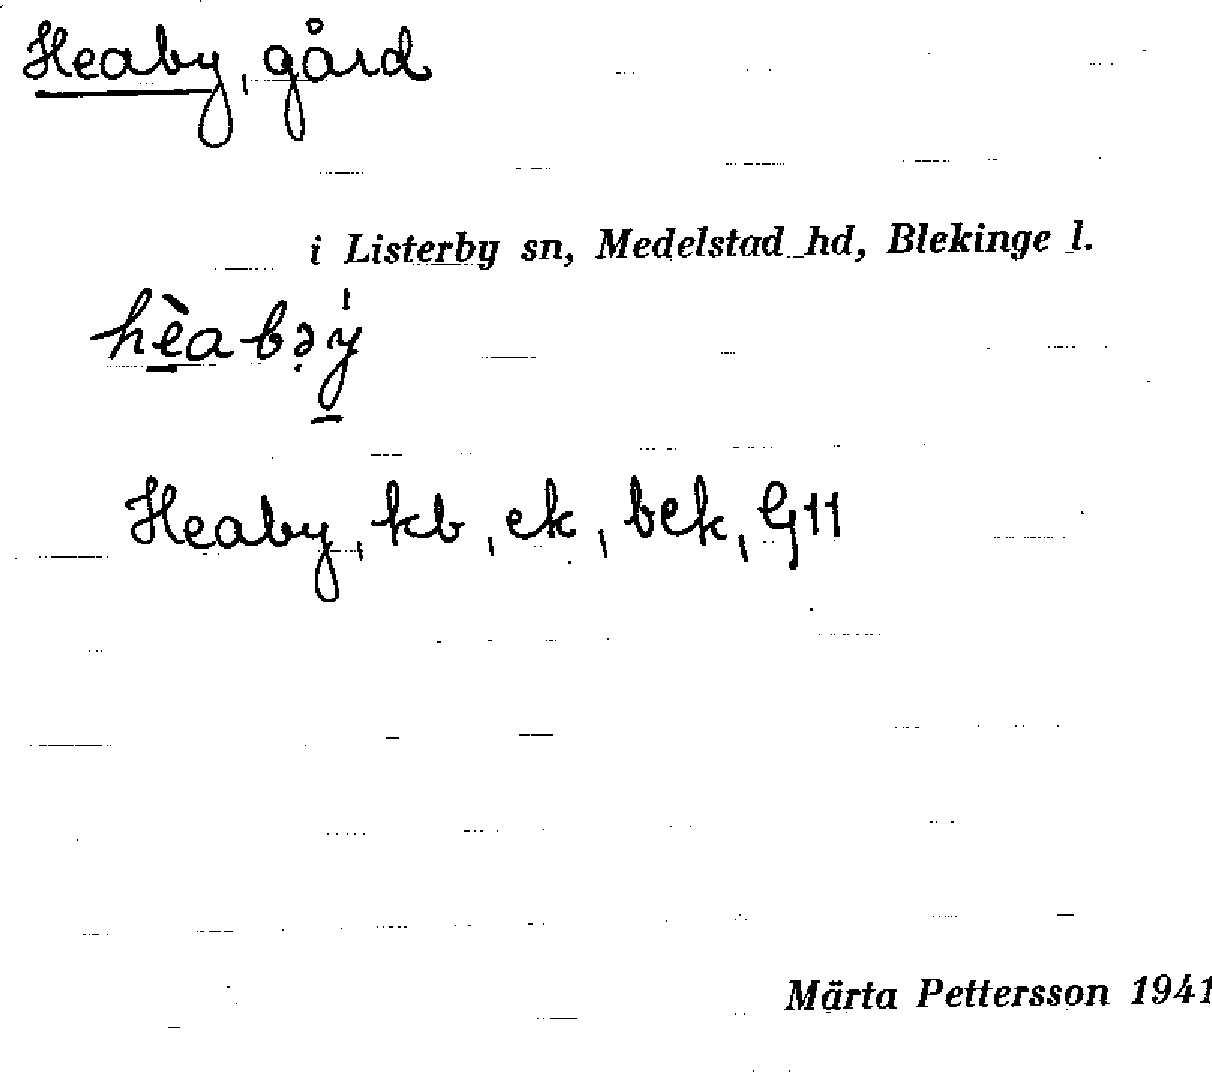 Heaby, gård
i Listerby sn, Medelstad hd, Blekinge l.
hèabə̣ý
Heaby, kb, ek, bek, G11
Märta Pettersson 1941